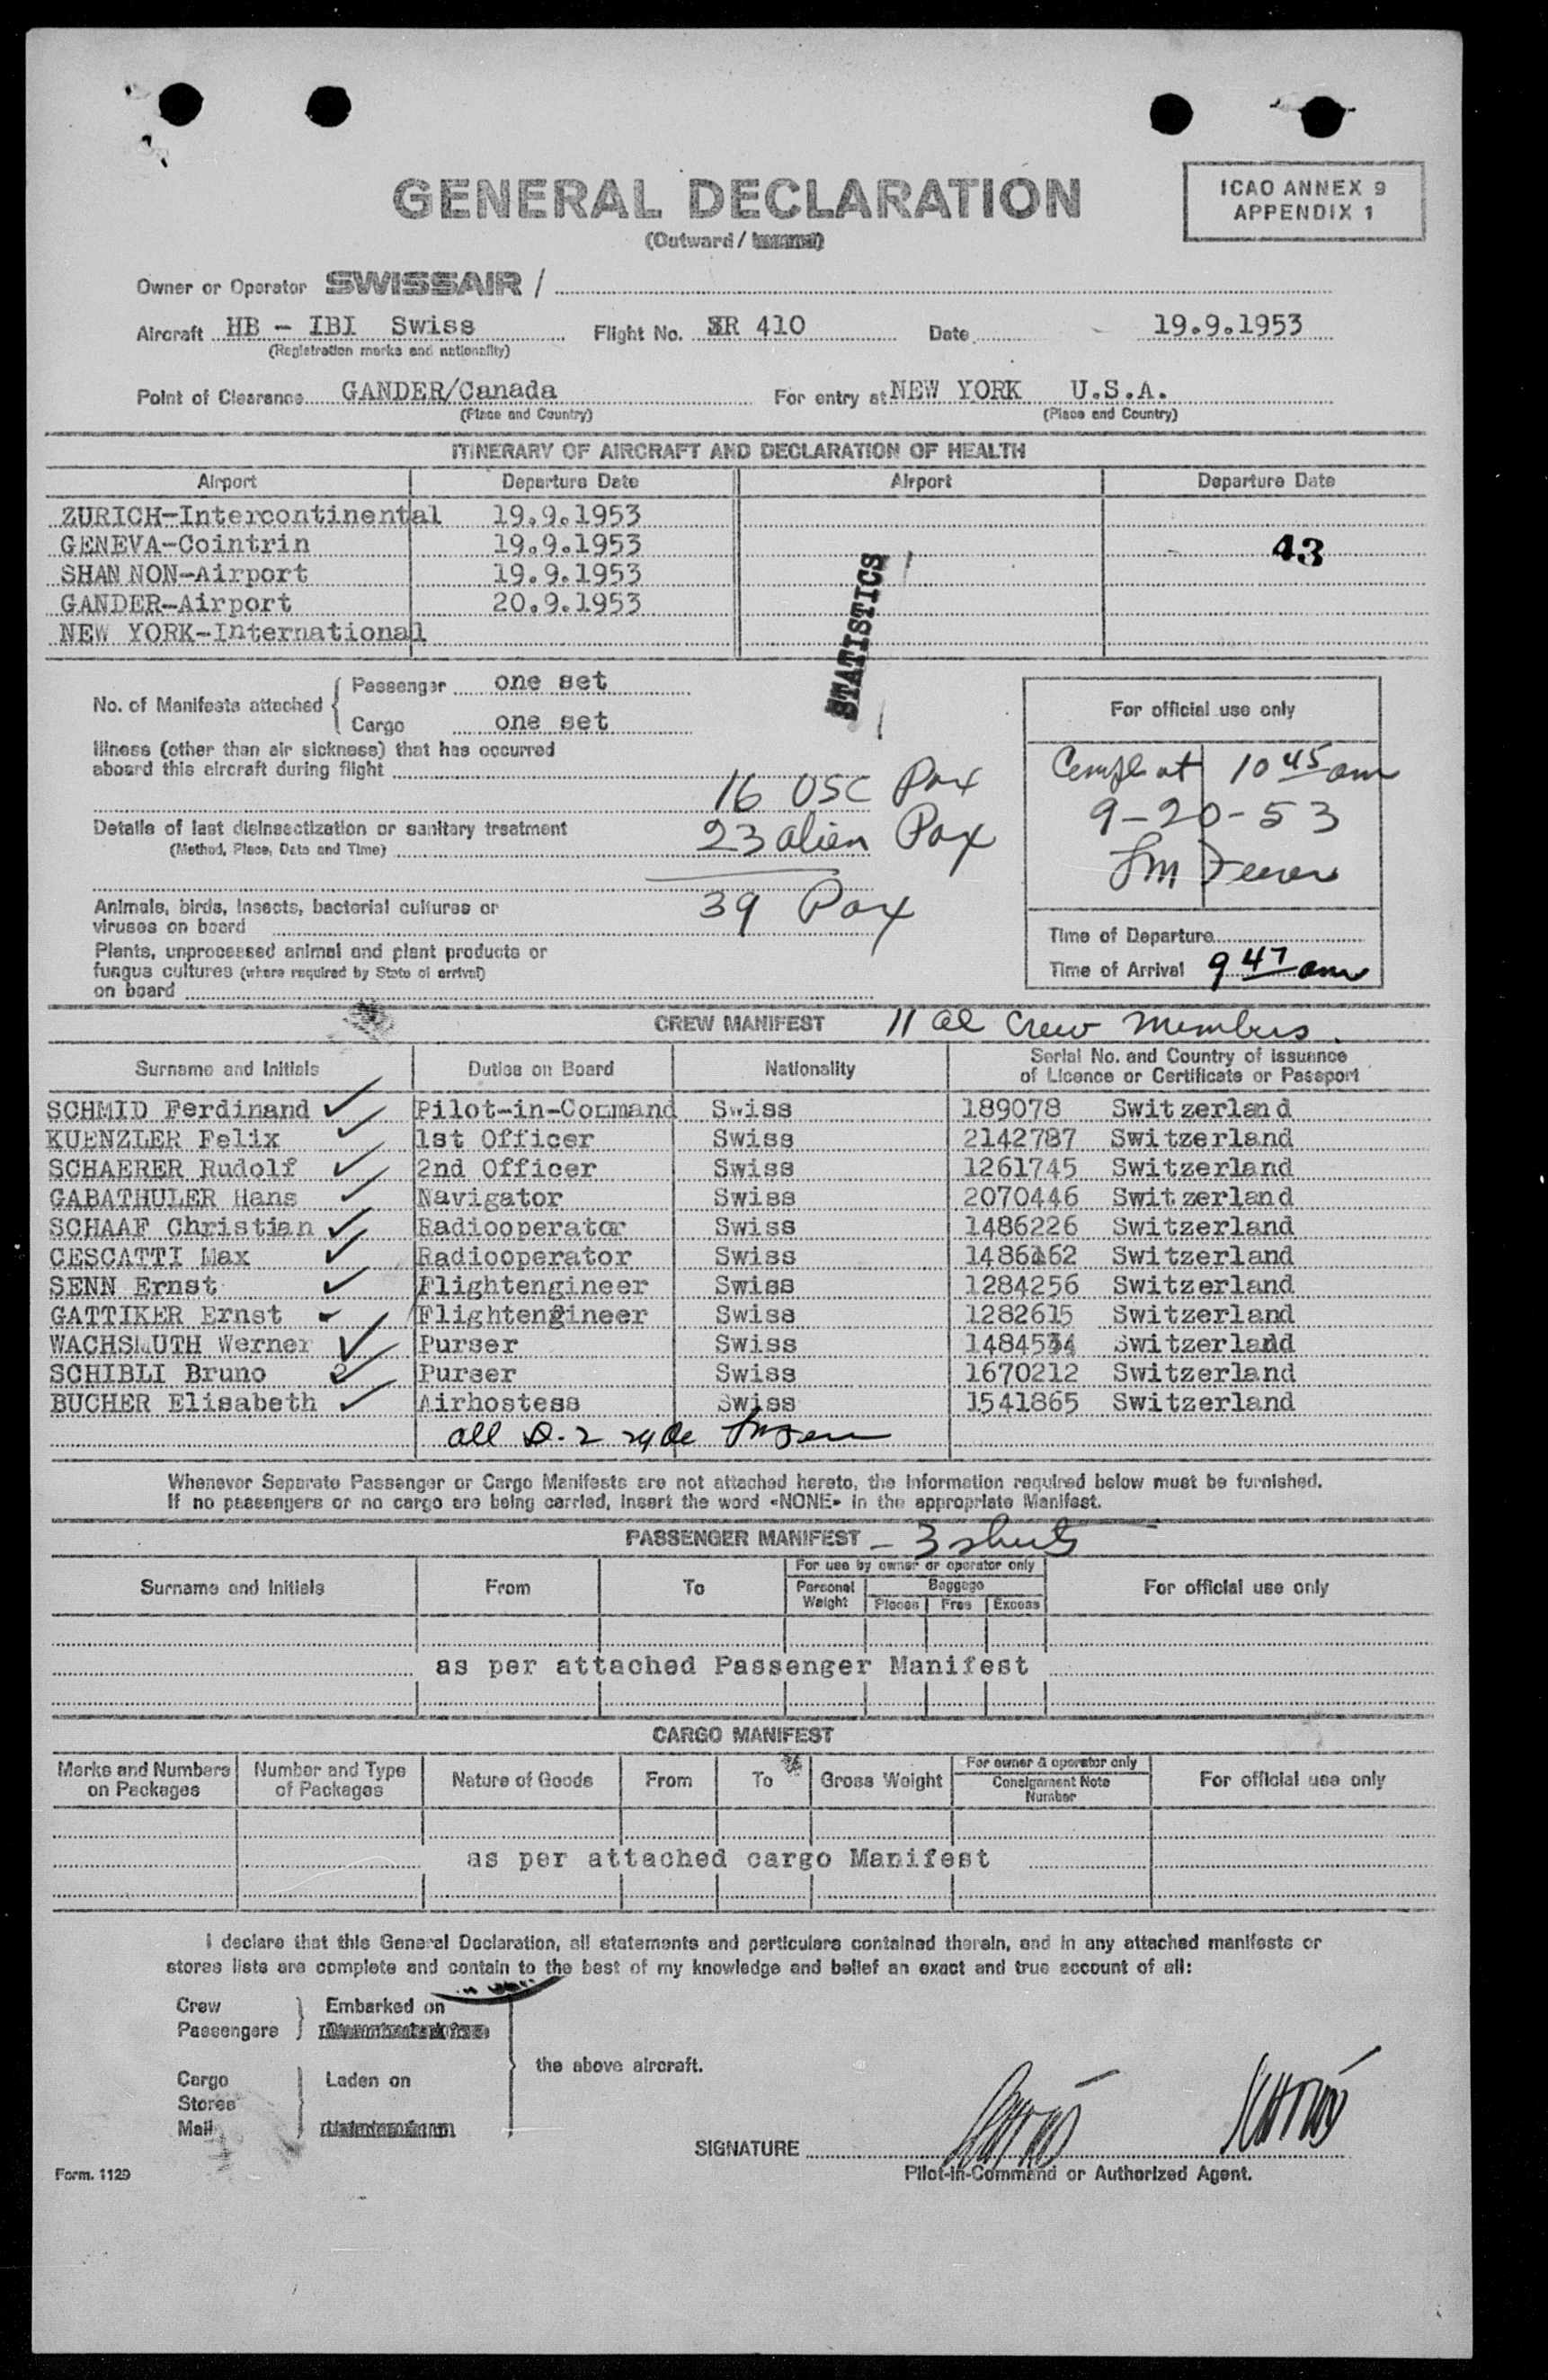 GENERAL DECLARATION
(Outward /
ICAO ANNEX 9
APPENDIX 1
Owner or Operator SWISSAIR /
Aircraft HB - IBI Swiss Flight No. SR 410 Date 19.9.1953
(Registration marks and nationality)
Point of Clearance GANDER/Canada For entry at NEW YORK U.S.A.
(Place and Country) (Place and Country)
ITINERARY OF AIRCRAFT AND DECLARATION OF HEALTH
Airport Departure Date Airport Departure Date
ZURICH-Intercontinental 19.9.1953
GENEVA-Cointrin 19.9.1953 43
SHAN NON-Airport 19.9.1953
GANDER-Airport 20.9.1953
NEW YORK-International
STATISTICS
No. of Manifests attached { Passenger one set
Cargo one set
For official use only
Illness (other than air sickness) that has occurred
aboard this aircraft during flight
16 USC Pax
10 45 am
9-20-53
Details of last disinsectization or sanitary treatment
(Method, Place, Date and Time)
23 alien Pax
39 Pax
Animals, birds, insects, bacterial cultures or
viruses on board
Plants, unprocessed animal and plant products or
fungus cultures (where required by State of arrival)
on board
Time of Departure
Time of Arrival 9 47 am
CREW MANIFEST 11 al Crew Members.
Surname and Initials Duties on Board Nationality Serial No. and Country of issuance
of Licence or Certificate or Passport
SCHMID Ferdinand Pilot-in-Command Swiss 189078 Switzerland
KUENZLER Felix 1st Officer Swiss 2142787 Switzerland
SCHAERER Rudolf 2nd Officer Swiss 1261745 Switzerland
GABATHULER Hans Navigator Swiss 2070446 Switzerland
SCHAAF Christian Radiooperator Swiss 1486226 Switzerland
CESCATTI Max Radiooperator Swiss 1486162 Switzerland
SENN Ernst Flightengineer Swiss 1284256 Switzerland
GATTIKER Ernst Flightengineer Swiss 1282615 Switzerland
WACHSMUTH Werner Purser Swiss 1484534 Switzerland
SCHIBLI Bruno Purser Swiss 1670212 Switzerland
BUCHER Elisabeth Airhostess Swiss 1541865 Switzerland
all D-2
Whenever Separate Passenger or Cargo Manifests are not attached hereto, the information required below must be furnished.
If no passengers or no cargo are being carried, insert the word «NONE» in the appropriate Manifest.
PASSENGER MANIFEST - 3 sheets
Surname and Initials From To For use by owner or operator only For official use only
Personal Weight Baggage
Pieces Free Excess
as per attached Passenger Manifest
CARGO MANIFEST
Marks and Numbers on Packages Number and Type of Packages Nature of Goods From To Gross Weight For owner & operator only
Consignment Note Number For official use only
as per attached cargo Manifest
I declare that this General Declaration, all statements and particulars contained therein, and in any attached manifests or
stores lists are complete and contain to the best of my knowledge and belief an exact and true account of all:
Crew Embarked on
Passengers
the above aircraft.
Cargo Laden on
Stores
Mail
SIGNATURE
Pilot-in-Command or Authorized Agent.
Form. 1129